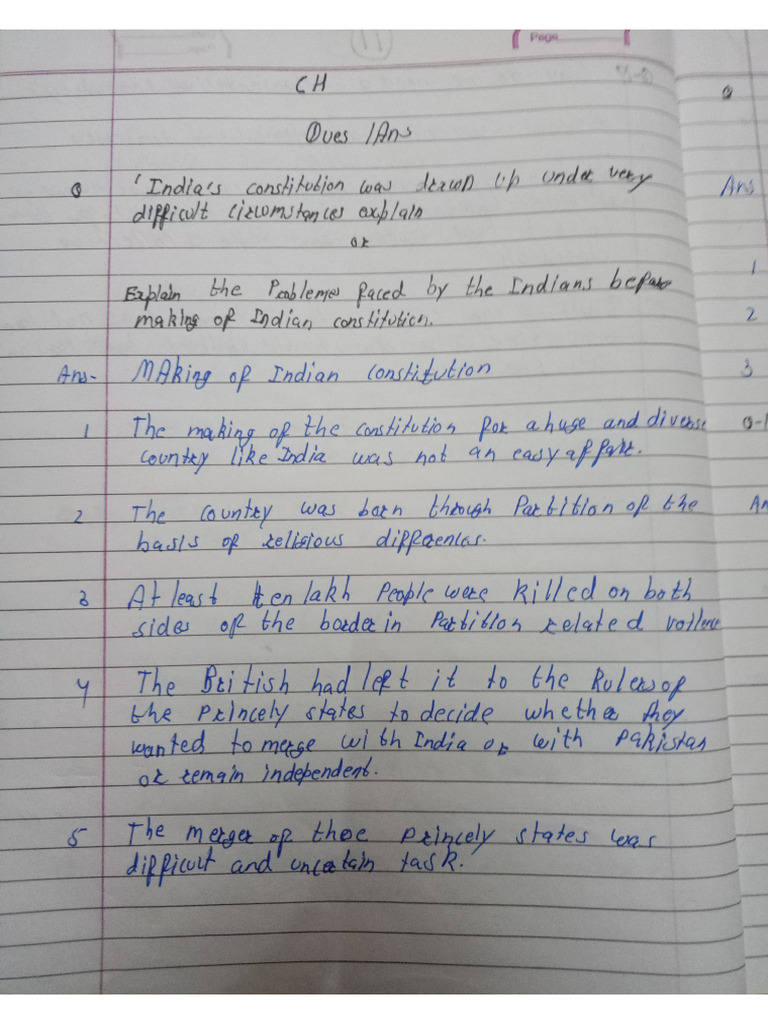 Page
CH
Ques / Ans
Q 'India's constitution was drawn up under very
difficult circomstances explain
or
Explain the Problemes faced by the Indians before
making of Indian constitution.
Ans- MAking of Indian constitution
1 The making of the constitution for a huge and diverse
country like India was not an easy affair.
2 The country was born through Partition of the
basis of religious differences.
3 At least ten lakh People were killed on both
sides of the border in Partition related voilence
4 The British had left it to the Rulers of
the Princely states to decide whether they
wanted to merge with India or with Pakistan
or remain independent.
5 The merger of these Princely states was
difficult and uncertain task.
Q
Ans
1
2
3
Q-1
An